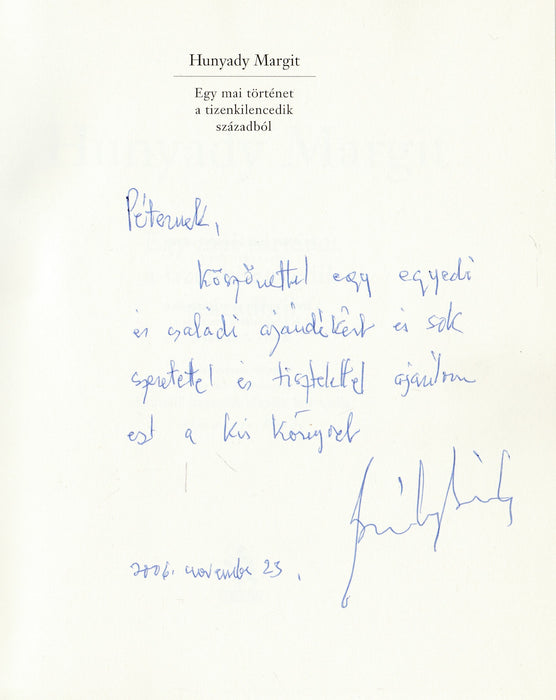 Hunyady Margit
Egy mai történet
a tizenkilencedik
századból
Péternek,
Köszönettel egy egyedi
és családi ajándékért és sok
szeretettel és tisztelettel ajánlom
ezt a kis
2006. november 23.